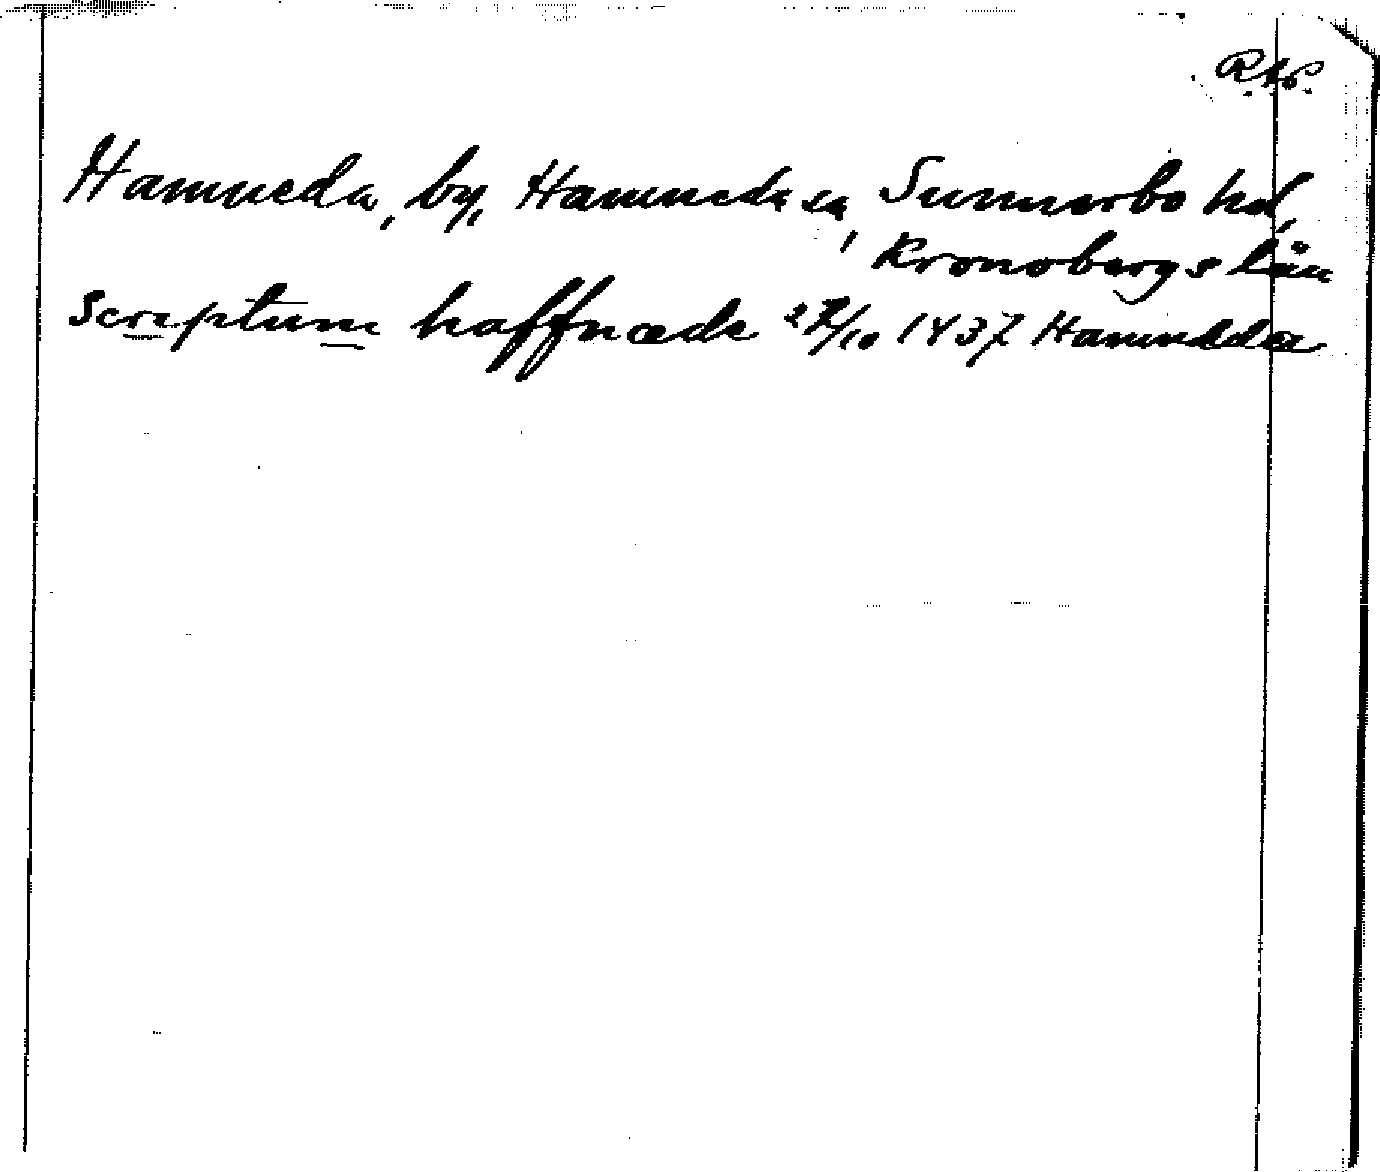 R.Ap.
Hamneda, by, Hamneda sn, Sunnerbo hd,
Kronobergs län
Screptum haffnæde 27/10 1437 Hamneda